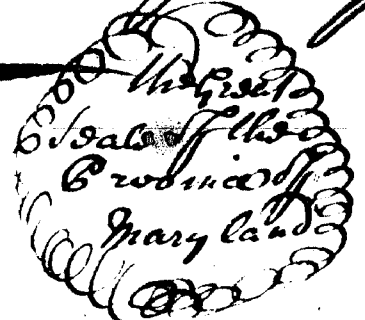 the Great
Seale off the
Province off
Mary land